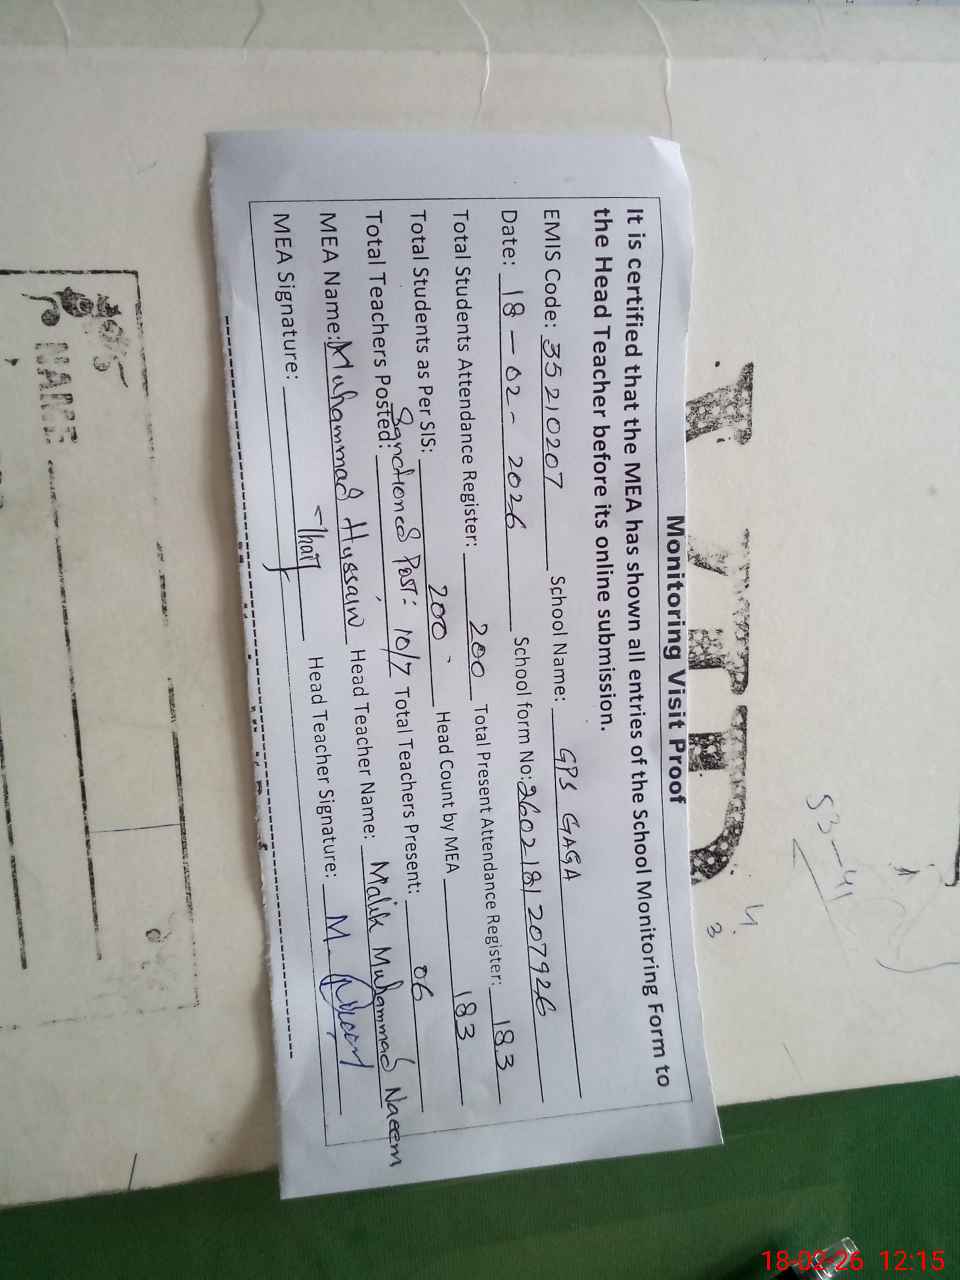 Monitoring Visit Proof
It is certified that the MEA has shown all entries of the School Monitoring Form to
the Head Teacher before its online submission.
EMIS Code: 35210207 School Name: GPS GAGA
Date: 18-02-2026 School form No: 2602181207926
Total Students Attendance Register: 200 Total Present Attendance Register: 183
Total Students as Per SIS: 200 Head Count by MEA 183
Total Teachers Posted: Sanctioned Post: 10/7 Total Teachers Present: 06
MEA Name: Muhammad Hussain Head Teacher Name: Malik Muhammad Naeem
MEA Signature: Head Teacher Signature: M.
NAME
53-41
4
3
18-02-26 12:15